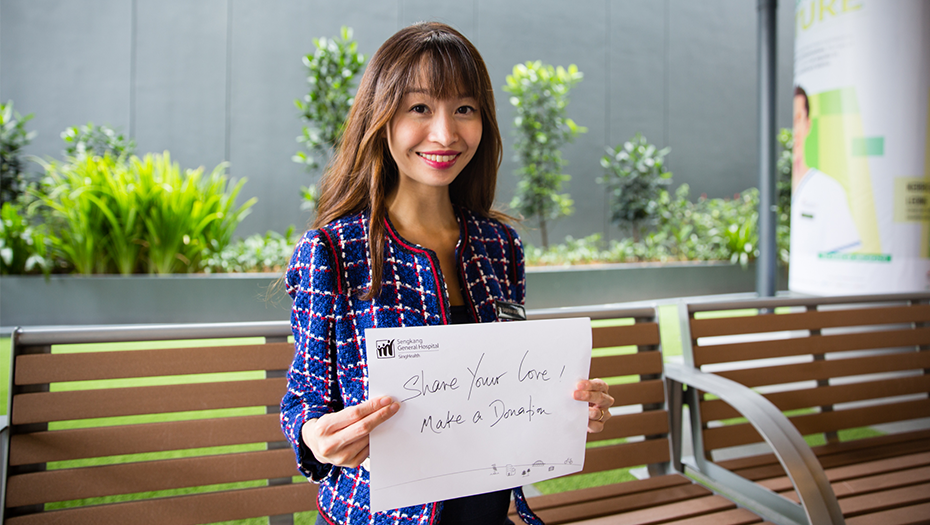 URE
Sengkang
General Hospital
SingHealth
Share Your Love!
Make a Donation